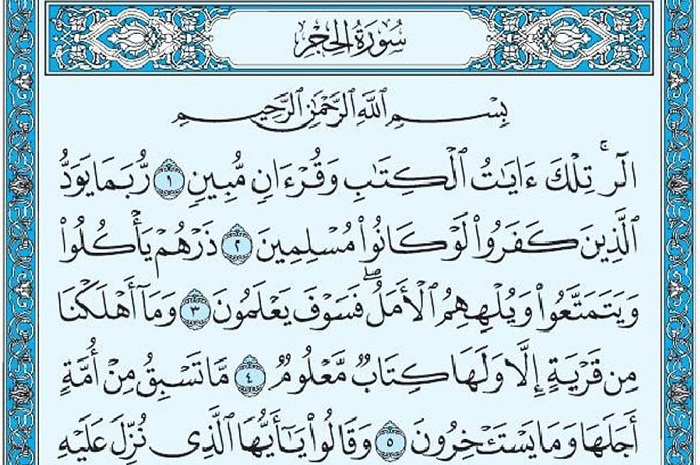 سُورَةُ الحِجْرِ
بِسْمِ ٱللَّهِ ٱلرَّحْمَٰنِ ٱلرَّحِيمِ
الٓرۚ تِلْكَ ءَايَٰتُ ٱلْكِتَٰبِ وَقُرْءَانٖ مُّبِينٖ ١ رُّبَمَا يَوَدُّ
ٱلَّذِينَ كَفَرُواْ لَوْ كَانُواْ مُسْلِمِينَ ٢ ذَرْهُمْ يَأْكُلُواْ
وَيَتَمَتَّعُواْ وَيُلْهِهِمُ ٱلْأَمَلُۖ فَسَوْفَ يَعْلَمُونَ ٣ وَمَآ أَهْلَكْنَا
مِن قَرْيَةٍ إِلَّا وَلَهَا كِتَابٞ مَّعْلُومٞ ٤ مَّا تَسْبِقُ مِنْ أُمَّةٍ
أَجَلَهَا وَمَا يَسْتَـْٔخِرُونَ ٥ وَقَالُواْ يَٰٓأَيُّهَا ٱلَّذِى نُزِّلَ عَلَيْهِ